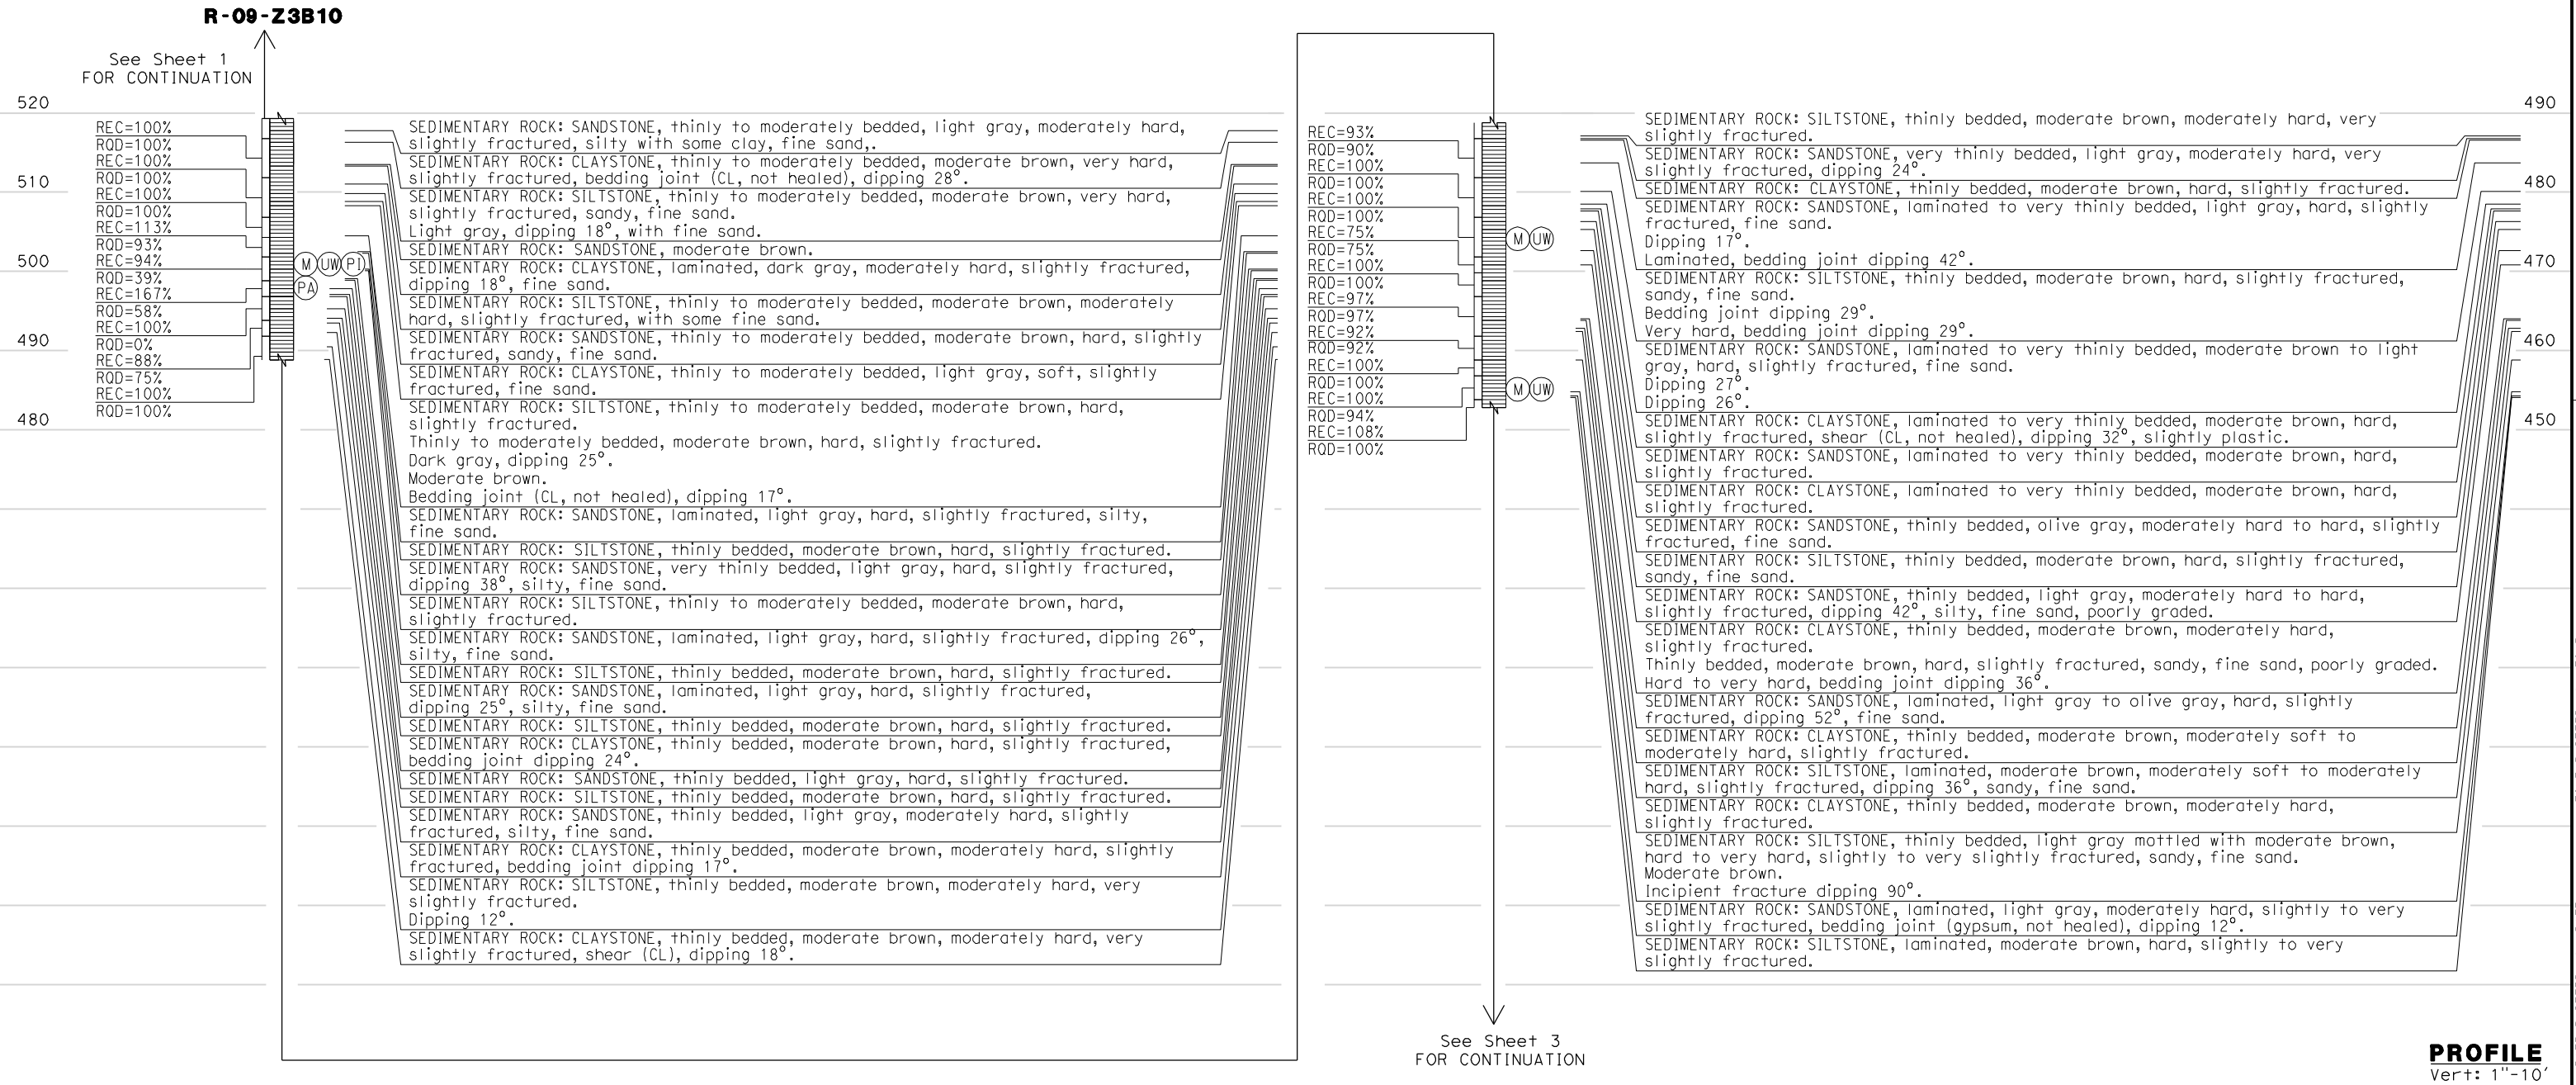 R-09-Z3B10
See Sheet 1
FOR CONTINUATION
520
510
500
490
480
REC=100%
RQD=100%
REC=100%
RQD=100%
REC=100%
RQD=100%
REC=113%
RQD=93%
REC=94%
RQD=39%
REC=167%
RQD=58%
REC=100%
RQD=0%
REC=88%
RQD=75%
REC=100%
RQD=100%
M UW PI
PA
SEDIMENTARY ROCK: SANDSTONE, thinly to moderately bedded, light gray, moderately hard,
slightly fractured, silty with some clay, fine sand,.
SEDIMENTARY ROCK: CLAYSTONE, thinly to moderately bedded, moderate brown, very hard,
slightly fractured, bedding joint (CL, not healed), dipping 28°.
SEDIMENTARY ROCK: SILTSTONE, thinly to moderately bedded, moderate brown, very hard,
slightly fractured, sandy, fine sand.
Light gray, dipping 18°, with fine sand.
SEDIMENTARY ROCK: SANDSTONE, moderate brown.
SEDIMENTARY ROCK: CLAYSTONE, laminated, dark gray, moderately hard, slightly fractured,
dipping 18°, fine sand.
SEDIMENTARY ROCK: SILTSTONE, thinly to moderately bedded, moderate brown, moderately
hard, slightly fractured, with some fine sand.
SEDIMENTARY ROCK: SANDSTONE, thinly to moderately bedded, moderate brown, hard, slightly
fractured, sandy, fine sand.
SEDIMENTARY ROCK: CLAYSTONE, thinly to moderately bedded, light gray, soft, slightly
fractured, fine sand.
SEDIMENTARY ROCK: SILTSTONE, thinly to moderately bedded, moderate brown, hard,
slightly fractured.
Thinly to moderately bedded, moderate brown, hard, slightly fractured.
Dark gray, dipping 25°.
Moderate brown.
Bedding joint (CL, not healed), dipping 17°.
SEDIMENTARY ROCK: SANDSTONE, laminated, light gray, hard, slightly fractured, silty,
fine sand.
SEDIMENTARY ROCK: SILTSTONE, thinly bedded, moderate brown, hard, slightly fractured.
SEDIMENTARY ROCK: SANDSTONE, very thinly bedded, light gray, hard, slightly fractured,
dipping 38°, silty, fine sand.
SEDIMENTARY ROCK: SILTSTONE, thinly to moderately bedded, moderate brown, hard,
slightly fractured.
SEDIMENTARY ROCK: SANDSTONE, laminated, light gray, hard, slightly fractured, dipping 26°,
silty, fine sand.
SEDIMENTARY ROCK: SILTSTONE, thinly bedded, moderate brown, hard, slightly fractured.
SEDIMENTARY ROCK: SANDSTONE, laminated, light gray, hard, slightly fractured,
dipping 25°, silty, fine sand.
SEDIMENTARY ROCK: SILTSTONE, thinly bedded, moderate brown, hard, slightly fractured.
SEDIMENTARY ROCK: CLAYSTONE, thinly bedded, moderate brown, hard, slightly fractured,
bedding joint dipping 24°.
SEDIMENTARY ROCK: SANDSTONE, thinly bedded, light gray, hard, slightly fractured.
SEDIMENTARY ROCK: SILTSTONE, thinly bedded, moderate brown, hard, slightly fractured.
SEDIMENTARY ROCK: SANDSTONE, thinly bedded, light gray, moderately hard, slightly
fractured, silty, fine sand.
SEDIMENTARY ROCK: CLAYSTONE, thinly bedded, moderate brown, moderately hard, slightly
fractured, bedding joint dipping 17°.
SEDIMENTARY ROCK: SILTSTONE, thinly bedded, moderate brown, moderately hard, very
slightly fractured.
Dipping 12°.
SEDIMENTARY ROCK: CLAYSTONE, thinly bedded, moderate brown, moderately hard, very
slightly fractured, shear (CL), dipping 18°.
REC=93%
RQD=90%
REC=100%
RQD=100%
REC=100%
RQD=100%
REC=75%
RQD=75%
REC=100%
RQD=100%
REC=97%
RQD=97%
REC=92%
RQD=92%
REC=100%
RQD=100%
REC=100%
RQD=94%
REC=108%
RQD=100%
M UW
M UW
SEDIMENTARY ROCK: SILTSTONE, thinly bedded, moderate brown, moderately hard, very
slightly fractured.
SEDIMENTARY ROCK: SANDSTONE, very thinly bedded, light gray, moderately hard, very
slightly fractured, dipping 24°.
SEDIMENTARY ROCK: CLAYSTONE, thinly bedded, moderate brown, hard, slightly fractured.
SEDIMENTARY ROCK: SANDSTONE, laminated to very thinly bedded, light gray, hard, slightly
fractured, fine sand.
Dipping 17°.
Laminated, bedding joint dipping 42°.
SEDIMENTARY ROCK: SILTSTONE, thinly bedded, moderate brown, hard, slightly fractured,
sandy, fine sand.
Bedding joint dipping 29°.
Very hard, bedding joint dipping 29°.
SEDIMENTARY ROCK: SANDSTONE, laminated to very thinly bedded, moderate brown to light
gray, hard, slightly fractured, fine sand.
Dipping 27°.
Dipping 26°.
SEDIMENTARY ROCK: CLAYSTONE, laminated to very thinly bedded, moderate brown, hard,
slightly fractured, shear (CL, not healed), dipping 32°, slightly plastic.
SEDIMENTARY ROCK: SANDSTONE, laminated to very thinly bedded, moderate brown, hard,
slightly fractured.
SEDIMENTARY ROCK: CLAYSTONE, laminated to very thinly bedded, moderate brown, hard,
slightly fractured.
SEDIMENTARY ROCK: SANDSTONE, thinly bedded, olive gray, moderately hard to hard, slightly
fractured, fine sand.
SEDIMENTARY ROCK: SILTSTONE, thinly bedded, moderate brown, hard, slightly fractured,
sandy, fine sand.
SEDIMENTARY ROCK: SANDSTONE, thinly bedded, light gray, moderately hard to hard,
slightly fractured, dipping 42°, silty, fine sand, poorly graded.
SEDIMENTARY ROCK: CLAYSTONE, thinly bedded, moderate brown, moderately hard,
slightly fractured.
Thinly bedded, moderate brown, hard, slightly fractured, sandy, fine sand, poorly graded.
Hard to very hard, bedding joint dipping 36°.
SEDIMENTARY ROCK: SANDSTONE, laminated, light gray to olive gray, hard, slightly
fractured, dipping 52°, fine sand.
SEDIMENTARY ROCK: CLAYSTONE, thinly bedded, moderate brown, moderately soft to
moderately hard, slightly fractured.
SEDIMENTARY ROCK: SILTSTONE, laminated, moderate brown, moderately soft to moderately
hard, slightly fractured, dipping 36°, sandy, fine sand.
SEDIMENTARY ROCK: CLAYSTONE, thinly bedded, moderate brown, moderately hard,
slightly fractured.
SEDIMENTARY ROCK: SILTSTONE, thinly bedded, light gray mottled with moderate brown,
hard to very hard, slightly to very slightly fractured, sandy, fine sand.
Moderate brown.
Incipient fracture dipping 90°.
SEDIMENTARY ROCK: SANDSTONE, laminated, light gray, moderately hard, slightly to very
slightly fractured, bedding joint (gypsum, not healed), dipping 12°.
SEDIMENTARY ROCK: SILTSTONE, laminated, moderate brown, hard, slightly to very
slightly fractured.
490
480
470
460
450
See Sheet 3
FOR CONTINUATION
PROFILE
Vert: 1"-10'